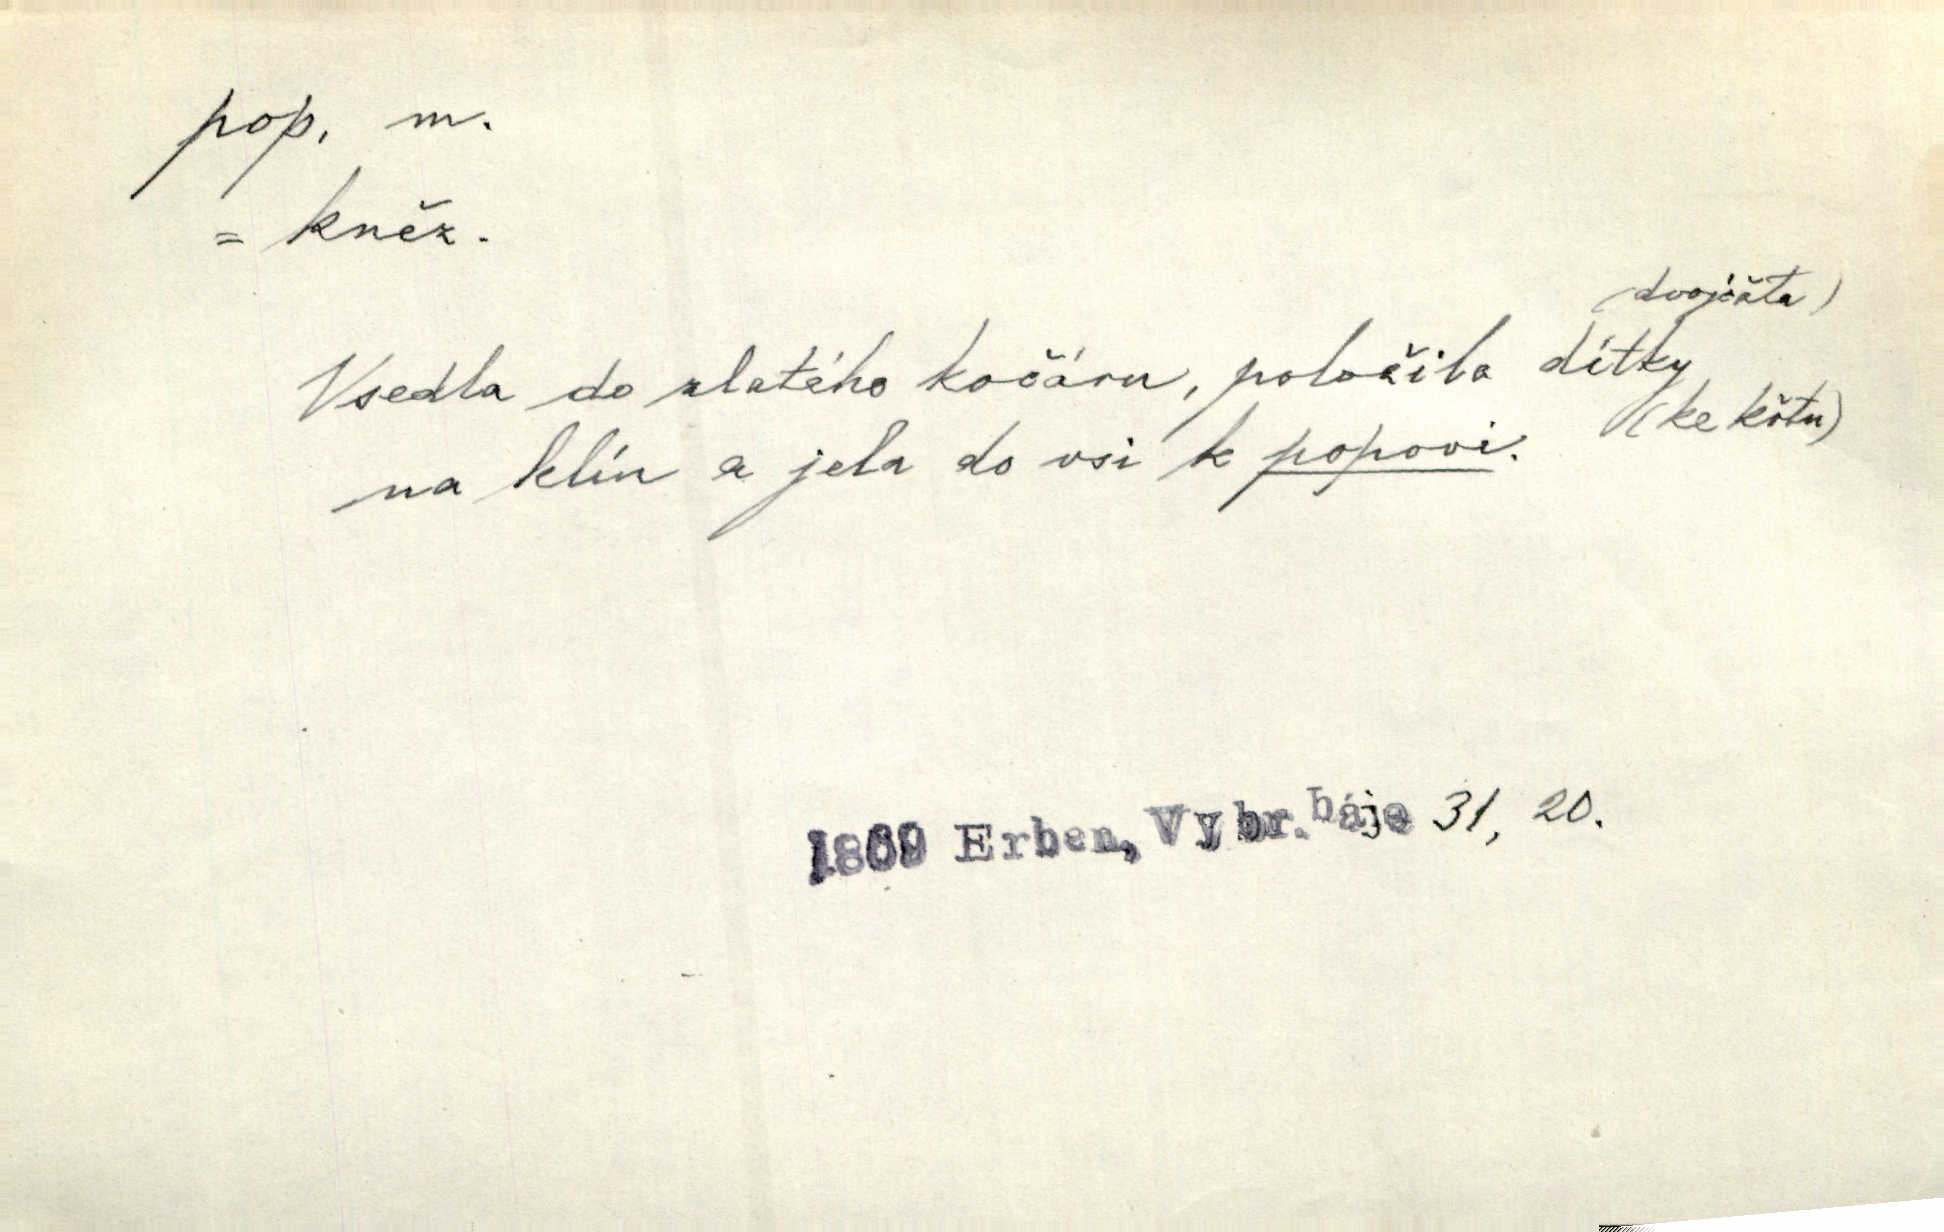 pop, m.
= kněz.
(dvojčata)
Vsedla do zlatého kočáru, položila dítky
(ke křtu)
na klín a jela do vsi k popovi.
1869 Erben, Vybr. báje 31, 20.